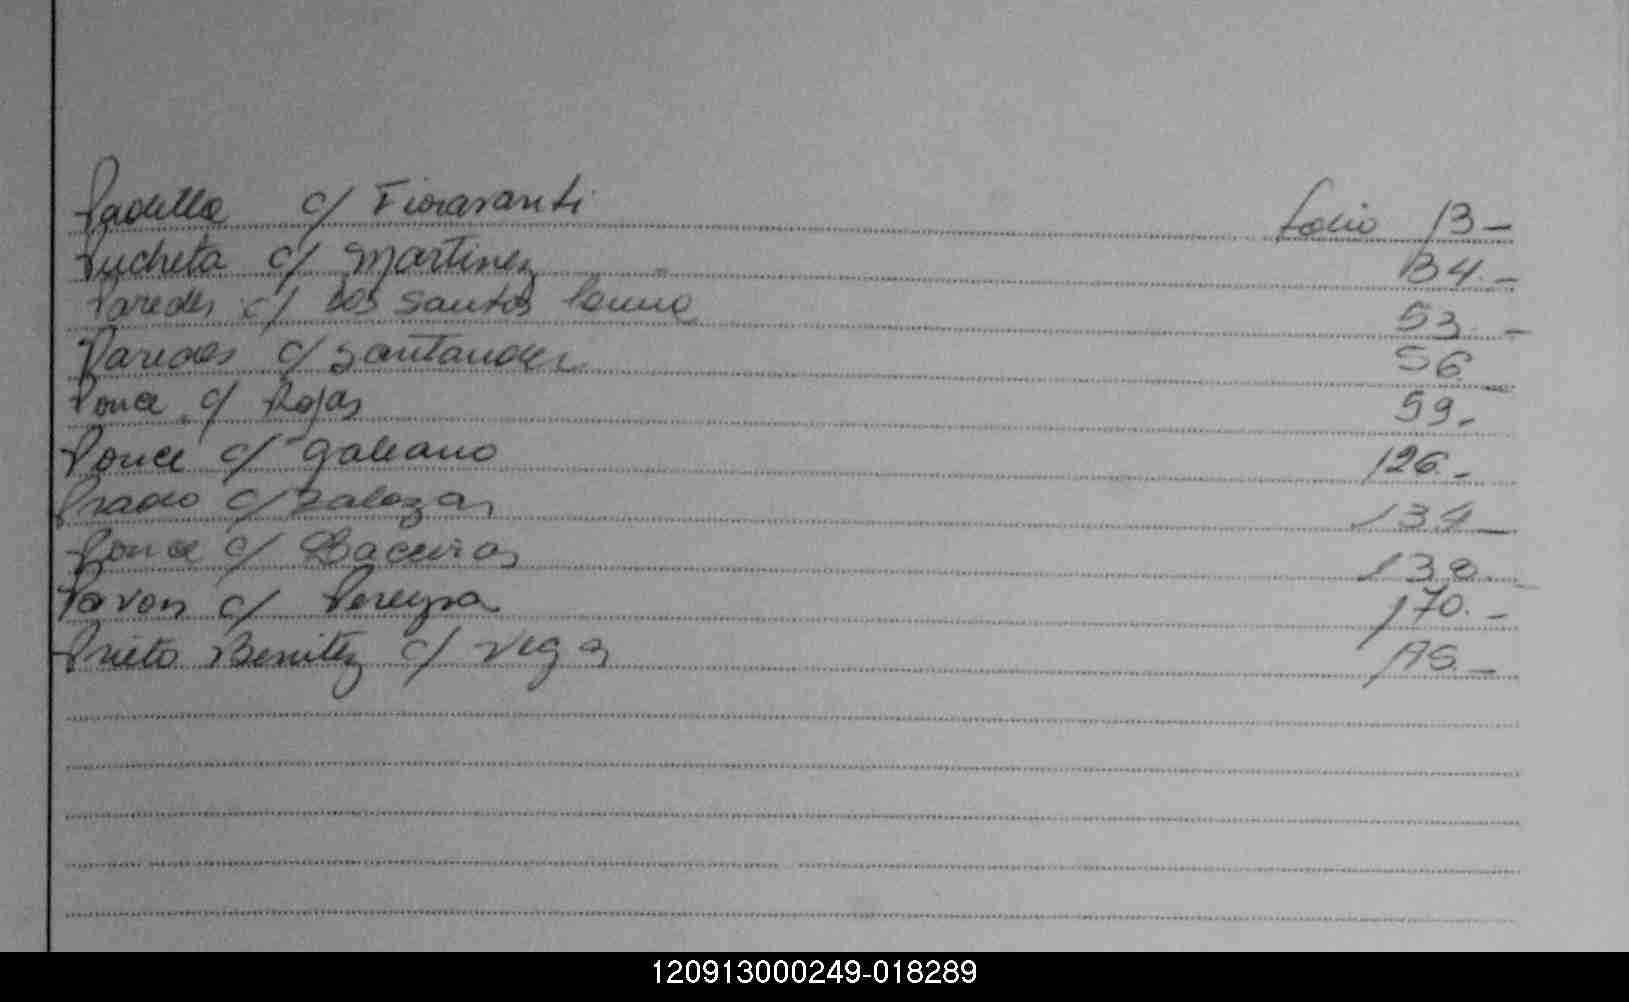 Padilla c/ Fioravanti folio 13-
Pucheta c/ Martinez 34.-
Paredes c/ dos Santos 53.-
Paredes c/ Santander 56
Ponce c/ Rojas 59.
Ponce c/ Galeano 126.-
Prado c/ Salazar 134
Ponce c/ 138.
Pavon c/ Pereyra 170.-
Prieto Benitez c/ Vega
120913000249-018289